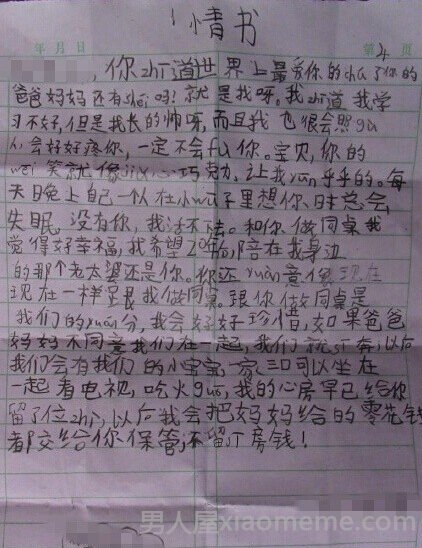 情书
年 月 日 第4页
，你zhī道世界上最爱你的chú了你的
爸爸妈妈还有shéi吗！就是我呀。我zhī道我学
习不好，但是我长的帅呀，而且我也很会照gù
会好好疼你，一定不会fù你。宝贝，你的
wēi笑就像巧克力，让我yūn乎乎的。每
天晚上自己一个人在小wū子里想你，时总会
失眠，没有你，我活不下去。和你做同桌我
觉得好幸福，我希望20年后，陪在我身边
的那个老太婆还是你。你还yuàn意像现在
现在一样坚持我做同桌。跟你做同桌是
我们的yuán分，我会好好珍惜，如果爸爸
妈妈不同意我们在一起，我们就私奔，以后
我们会有我们的小宝宝，一家三口可以坐在
一起看电视，吃火guō，我的心房早已给你
留了位zhì，以后我会把妈妈给的零花钱
都交给你保管，不留房钱！
男人屋xiaomeme.com